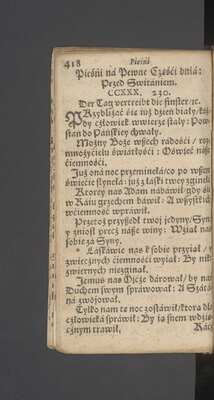 418 Pieśni
Pieśni na Pewne Cześći dniá:
Przed Switániem.
CCXXX. 230.
Der Tag vertreibt die finster ꝛc.
PRzybliżáć śie już dzień biáły/
dy cżłowiek w wierze stały: Pow
stań do Páńskiey chwały.
Możny Boże wßech rádośći / roz
mnożyćielu świátłośći: Oświeć náße
ćiemnośći.
Już oná noc przeminełá/co po wßem
świećie słynełá: już z łáski twey zginełá
Ktorey nas Adam nábáwił gdy
w Ráju grzechem báwił: A wßystki
w ćiemność wpráwił.
Przetoż przyßedł twoj jedyny/Syn
y zniosł precż náße winy: Wziął nas
sobie zá Syny.
Láskáwie nas k sobie przyjął / y
z wiecżnych ćiemnośći wyjął: By nik
w śiernych nie zginął.
Jemus nas Ojcże dárował/by nas
Duchem swym spráwował: A Szátá
ná zwojował.
Tylko nam tę noc zostáwił/ktorą dla
cżłowieká spráwił: By ją snem wdzię
cżnym trawił,